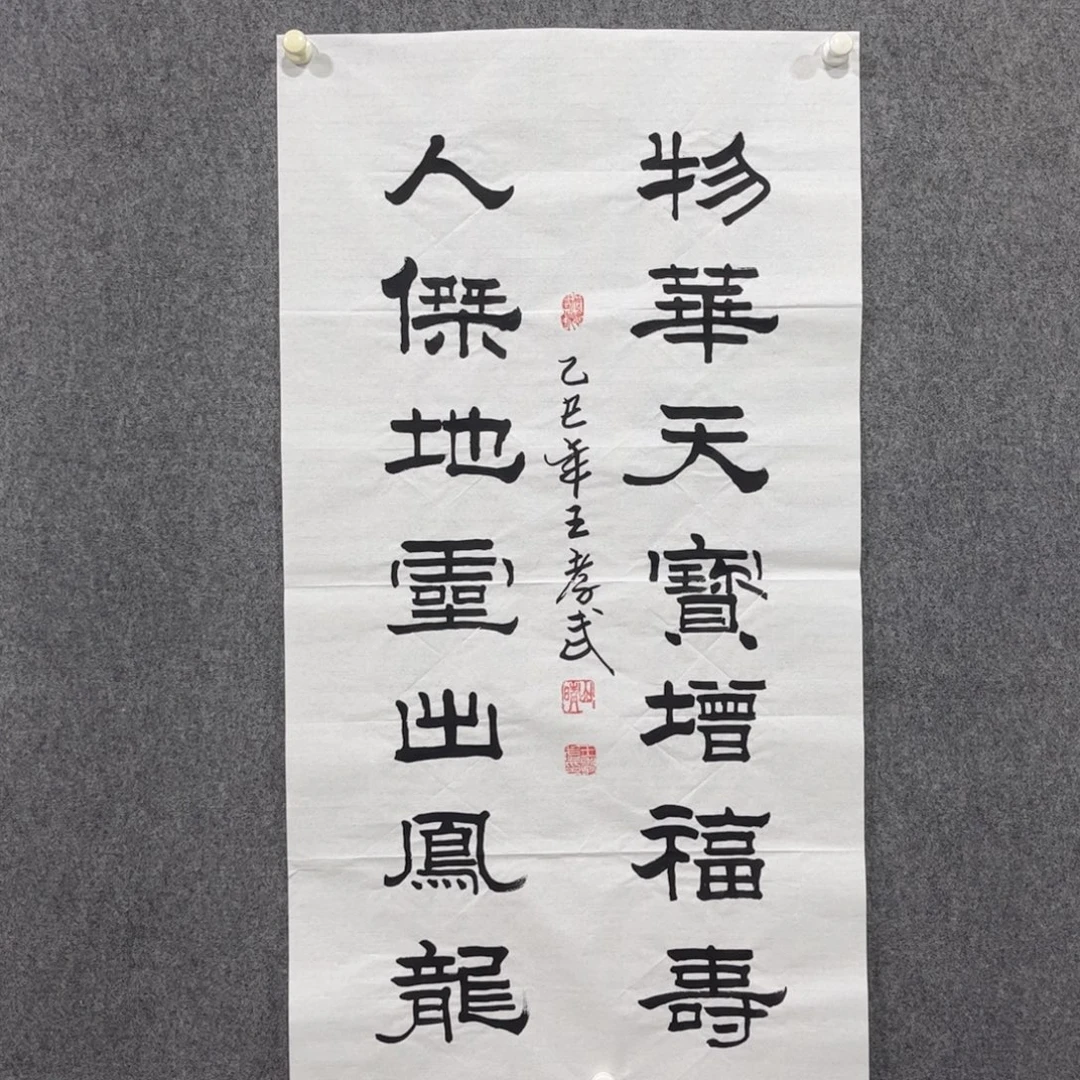 物華天寶增福壽
人傑地靈出鳳龍
乙巳年王孝武